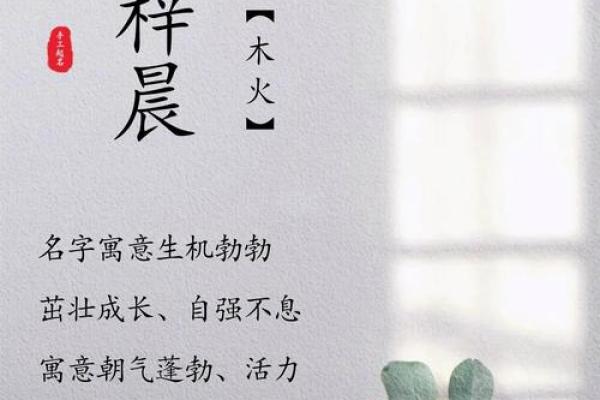 梓晨
【木火】
手工起名
名字寓意生机勃勃
茁壮成长、自强不息
寓意朝气蓬勃、活力